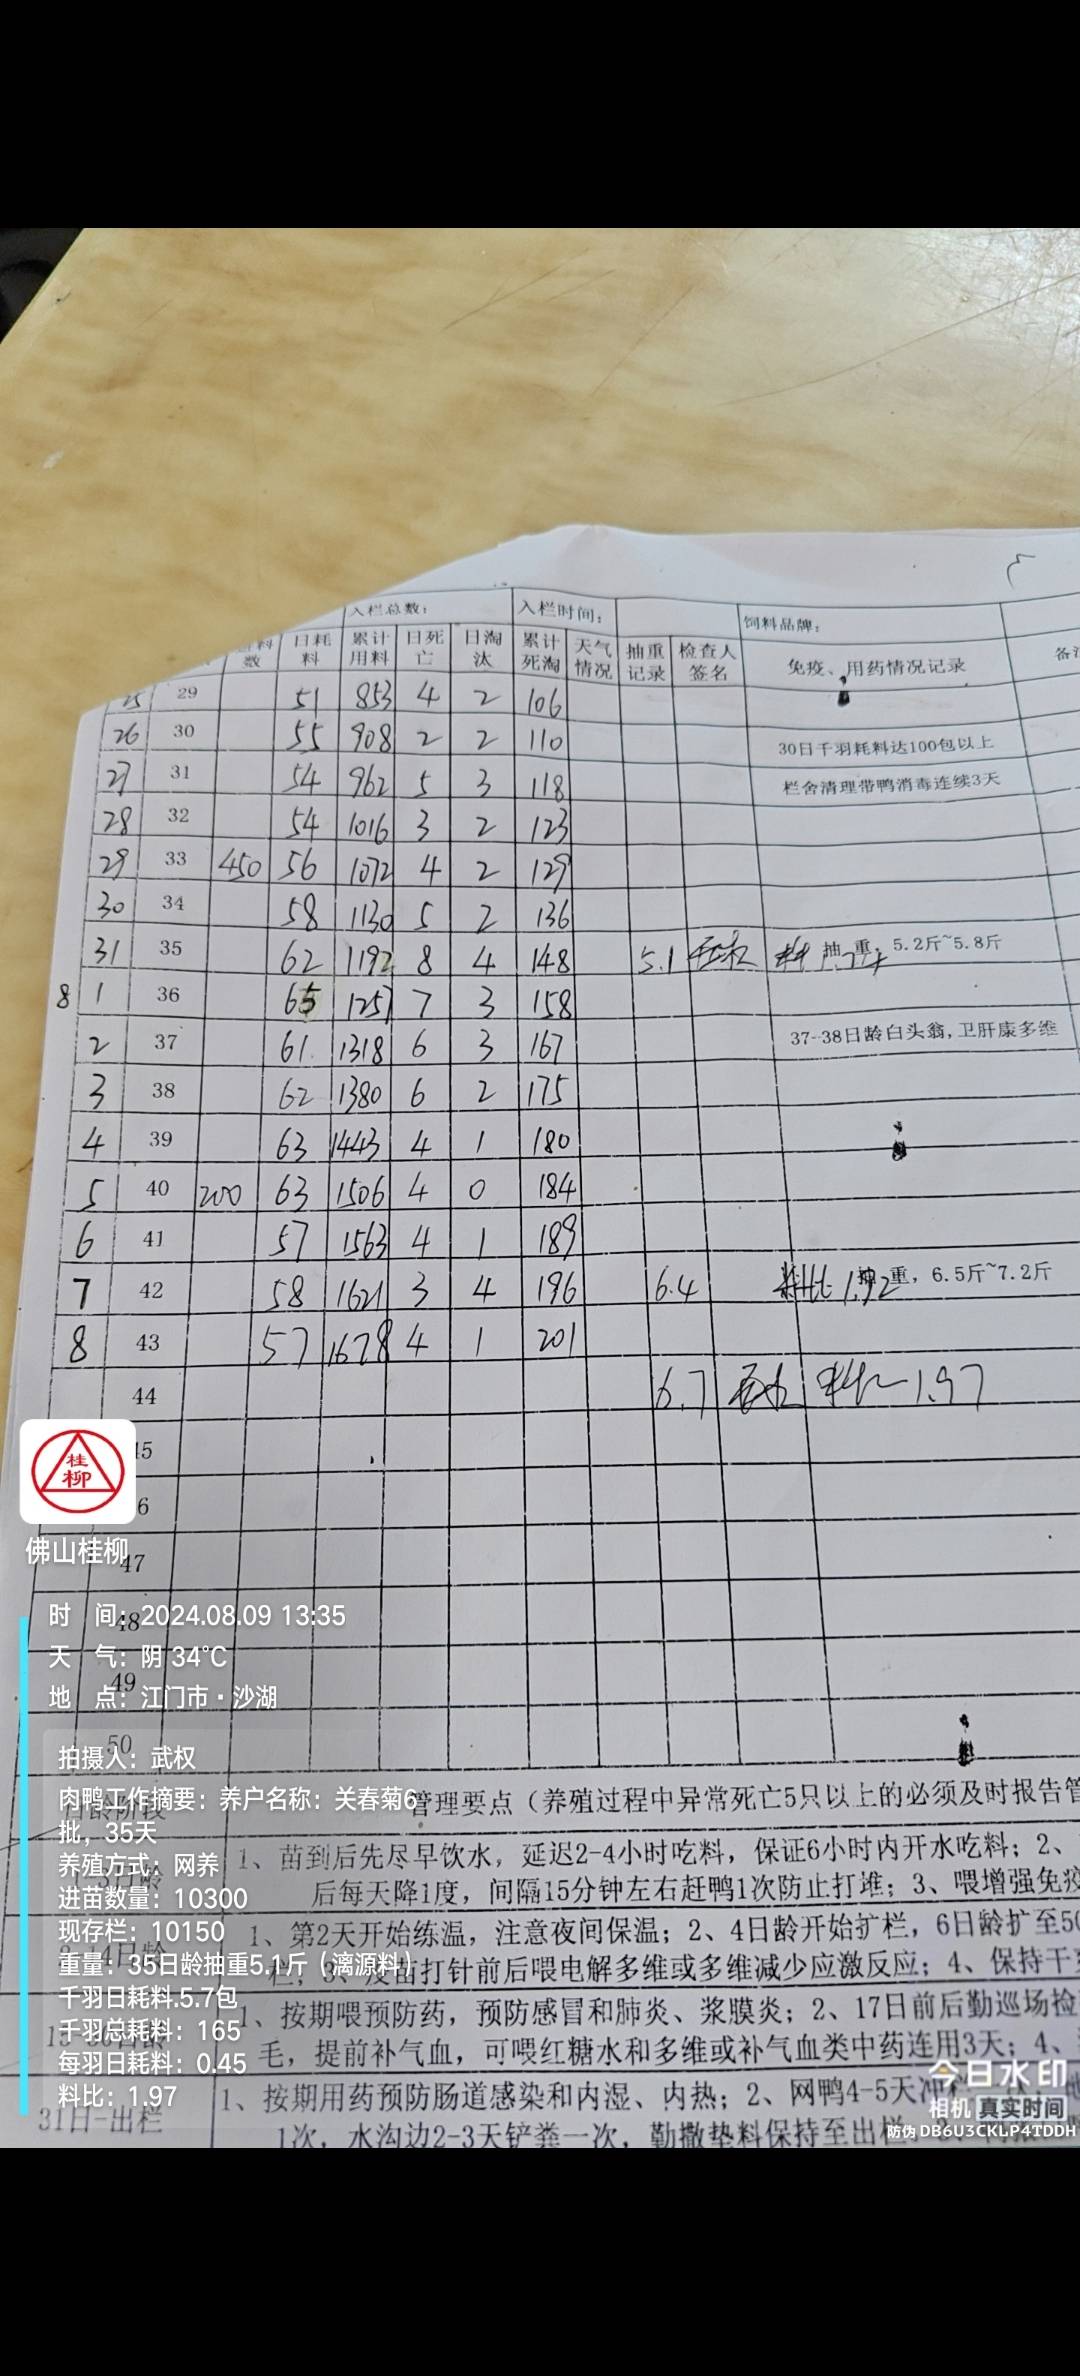 入栏总数： 入栏时间： 饲料品牌：
数 日耗料 累计用料 日死亡 日淘汰 累计死淘 天气情况 抽重记录 检查人签名 免疫、用药情况记录
25 29 51 853 4 2 106
26 30 55 908 2 2 110 30日千羽耗料达100包以上
27 31 54 962 5 3 118 栏舍清理带鸭消毒连续3天
28 32 54 1016 3 2 123
29 33 450 56 1072 4 2 129
30 34 58 1130 5 2 136
31 35 62 1192 8 4 148 5.1 抽重，5.2斤~5.8斤
8 1 36 65 1257 7 3 158
2 37 61 1318 6 3 167 37-38日龄白头翁,卫肝康多维
3 38 62 1380 6 2 175
4 39 63 1443 4 1 180
5 40 200 63 1506 4 0 184
6 41 57 1563 4 1 189
7 42 58 1621 3 4 196 6.4 料比 1.92 抽重，6.5斤~7.2斤
8 43 57 1678 4 1 201
44 6.7 料比 1.97
45
46
47
48
49
50
桂柳
佛山桂柳
时 间：2024.08.09 13:35
天 气：阴 34℃
地 点：江门市·沙湖
拍摄人：武权
肉鸭工作摘要：养户名称：关春菊6
批，35天
养殖方式：网养
进苗数量：10300
现存栏：10150
重量：35日龄抽重5.1斤（漓源料）
千羽日耗料.5.7包
千羽总耗料：165
每羽日耗料：0.45
料比：1.97
日龄阶段 管理要点（养殖过程中异常死亡5只以上的必须及时报告管
1、苗到后先尽早饮水，延迟2-4小时吃料，保证6小时内开水吃料；2、
后每天降1度，间隔15分钟左右赶鸭1次防止打堆；3、喂增强免疫
1、第2天开始练温，注意夜间保温；2、4日龄开始扩栏，6日龄扩至50
苗打针前后喂电解多维或多维减少应激反应；4、保持干
1、按期喂预防药，预防感冒和肺炎、浆膜炎；2、17日前后勤巡场检
毛，提前补气血，可喂红糖水和多维或补气血类中药连用3天；4、
31日-出栏 1、按期用药预防肠道感染和内湿、内热；2、网鸭4-5天冲栏一
1次，水沟边2-3天铲粪一次，勤撒垫料保持至出栏
今日水印
相机 真实时间
防伪 DB6U3CKLP4TDDH